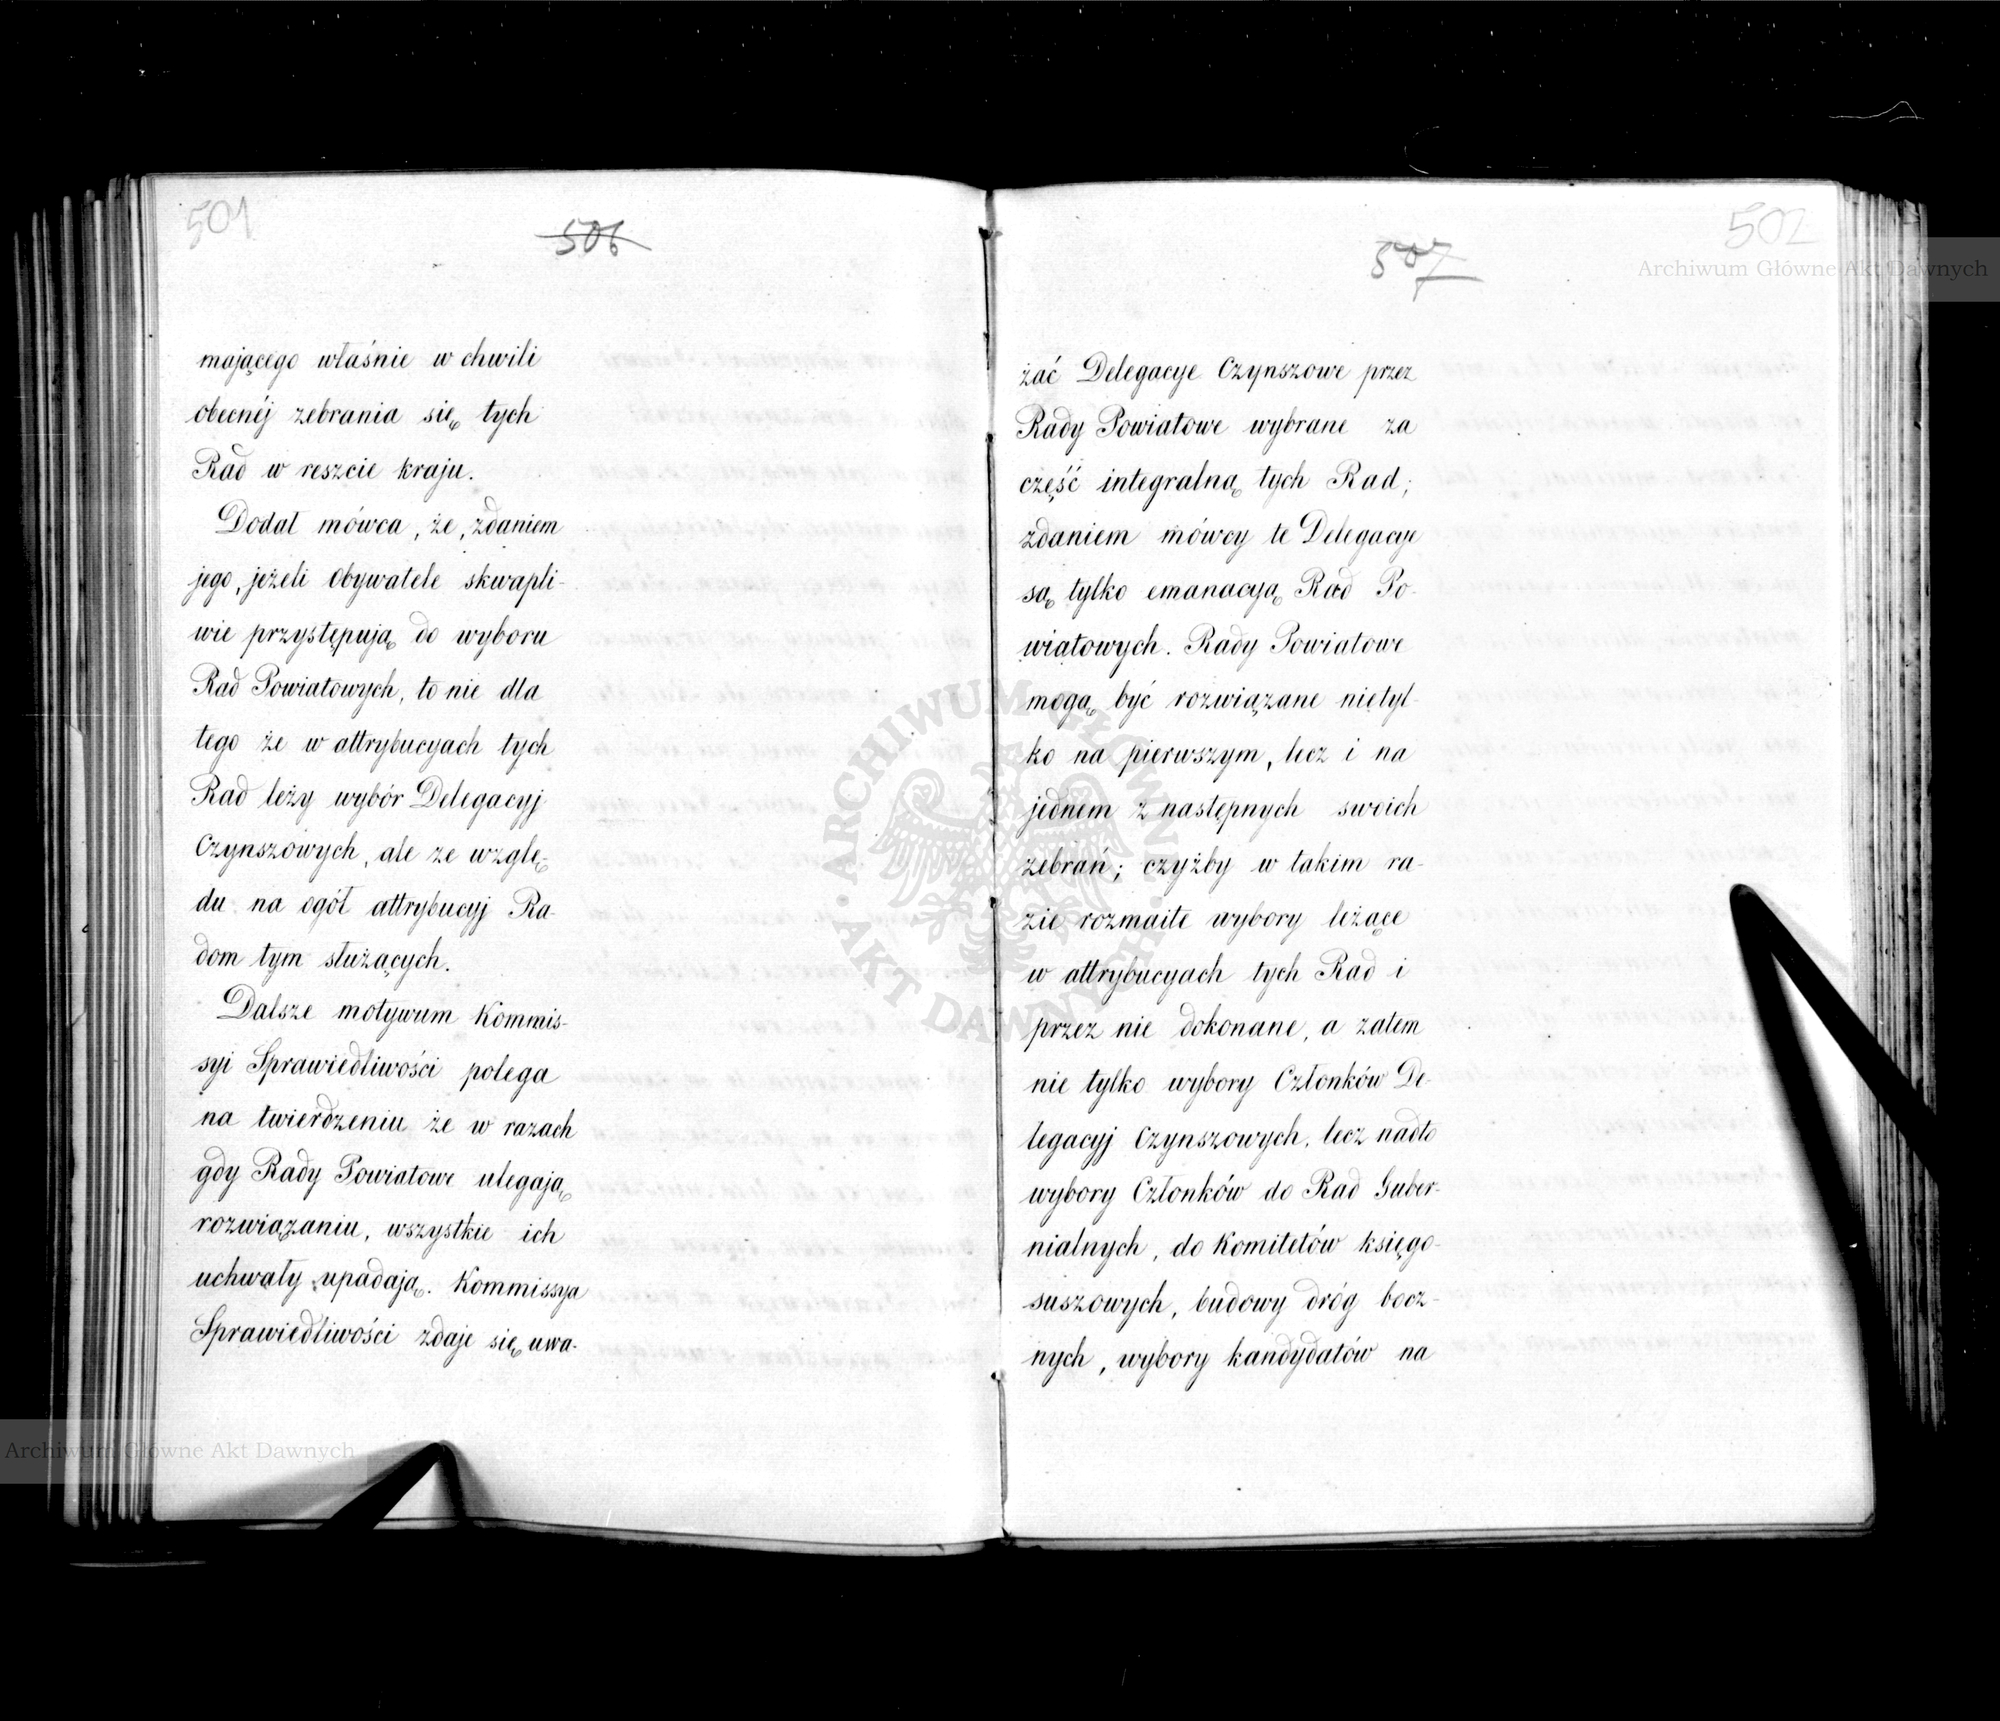 501
506
mającego właśnie w chwili
obecnéj zebrania się tych
Rad w reszcie kraju.
Dodał mówca, że, zdaniem
jego, jeżeli Obywatele skwapli-
wie przystępują do wyboru
Rad Powiatowych, to nie dla
tego że w attrybucyach tych
Rad leży wybór Delegacyj
Czynszowych, ale ze wzglę-
du na ogół attrybucyj Ra-
dom tym służących.
Dalsze motywum Kommis-
syi Sprawiedliwości polega
na twierdzeniu że w razach
gdy Rady Powiatowe ulegają
rozwiązaniu, wszystkie ich
uchwały upadają. Kommissya
Sprawiedliwości zdaje się uwa-
502
507
żać Delegacye Czynszowe przez
Rady Powiatowe wybrane za
część integralną tych Rad;
zdaniem mówcy te Delegacye
są tylko emanacyą Rad Po-
wiatowych. Rady Powiatowe
mogą być rozwiązane nietyl-
ko na pierwszym, lecz i na
jednem z następnych swoich
zebrań; czyżby w takim ra-
zie rozmaite wybory leżące
w attrybucyach tych Rad i
przez nie dokonane, a zatem
nie tylko wybory Członków De-
legacyj Czynszowych, lecz nadto
wybory Członków do Rad Guber-
nialnych, do Komitetów księgo-
suszowych, budowy dróg bocz-
nych, wybory kandydatów na
Archiwum Główne Akt Dawnych
ARCHIWUM GŁÓWNE AKT DAWNYCH
Archiwum Główne Akt Dawnych